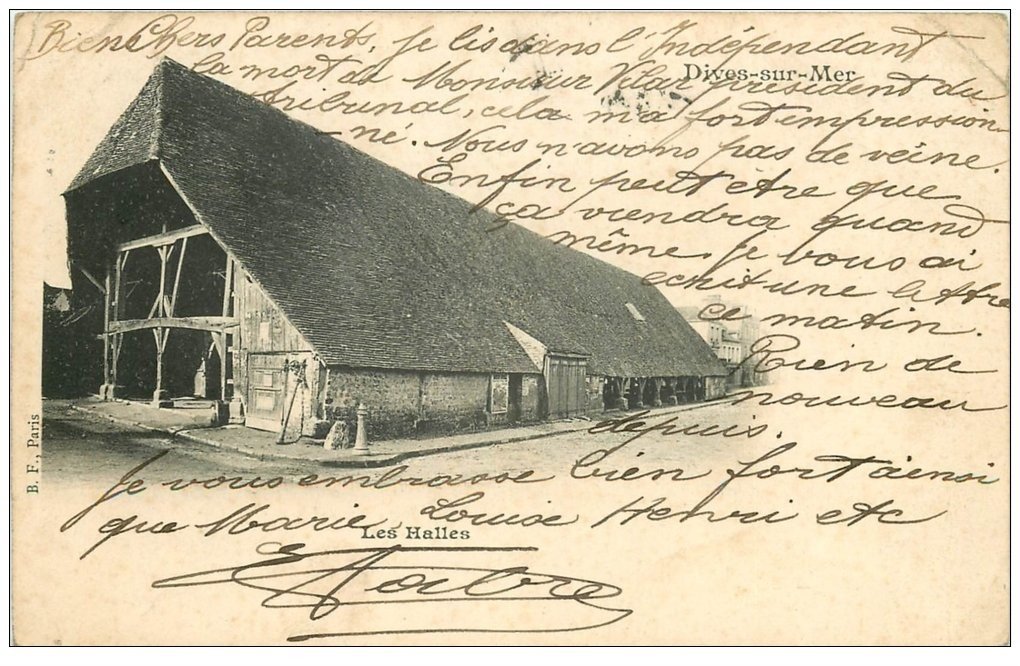 Bien Chers Parents, Je lis dans l'Indépendant
Dives-sur-Mer
la mort de Monsieur président du
tribunal, cela m'a fort empression-
né. Nous n'avons pas de veine.
Enfin peut être que
ça viendra quand
même. Je vous ai
echit une lettre
ce matin.
Rien de
nouveau
depuis.
Je vous embrasse bien fort ainsi
que Marie Louise Henri etc
Les Halles
B. F., Paris